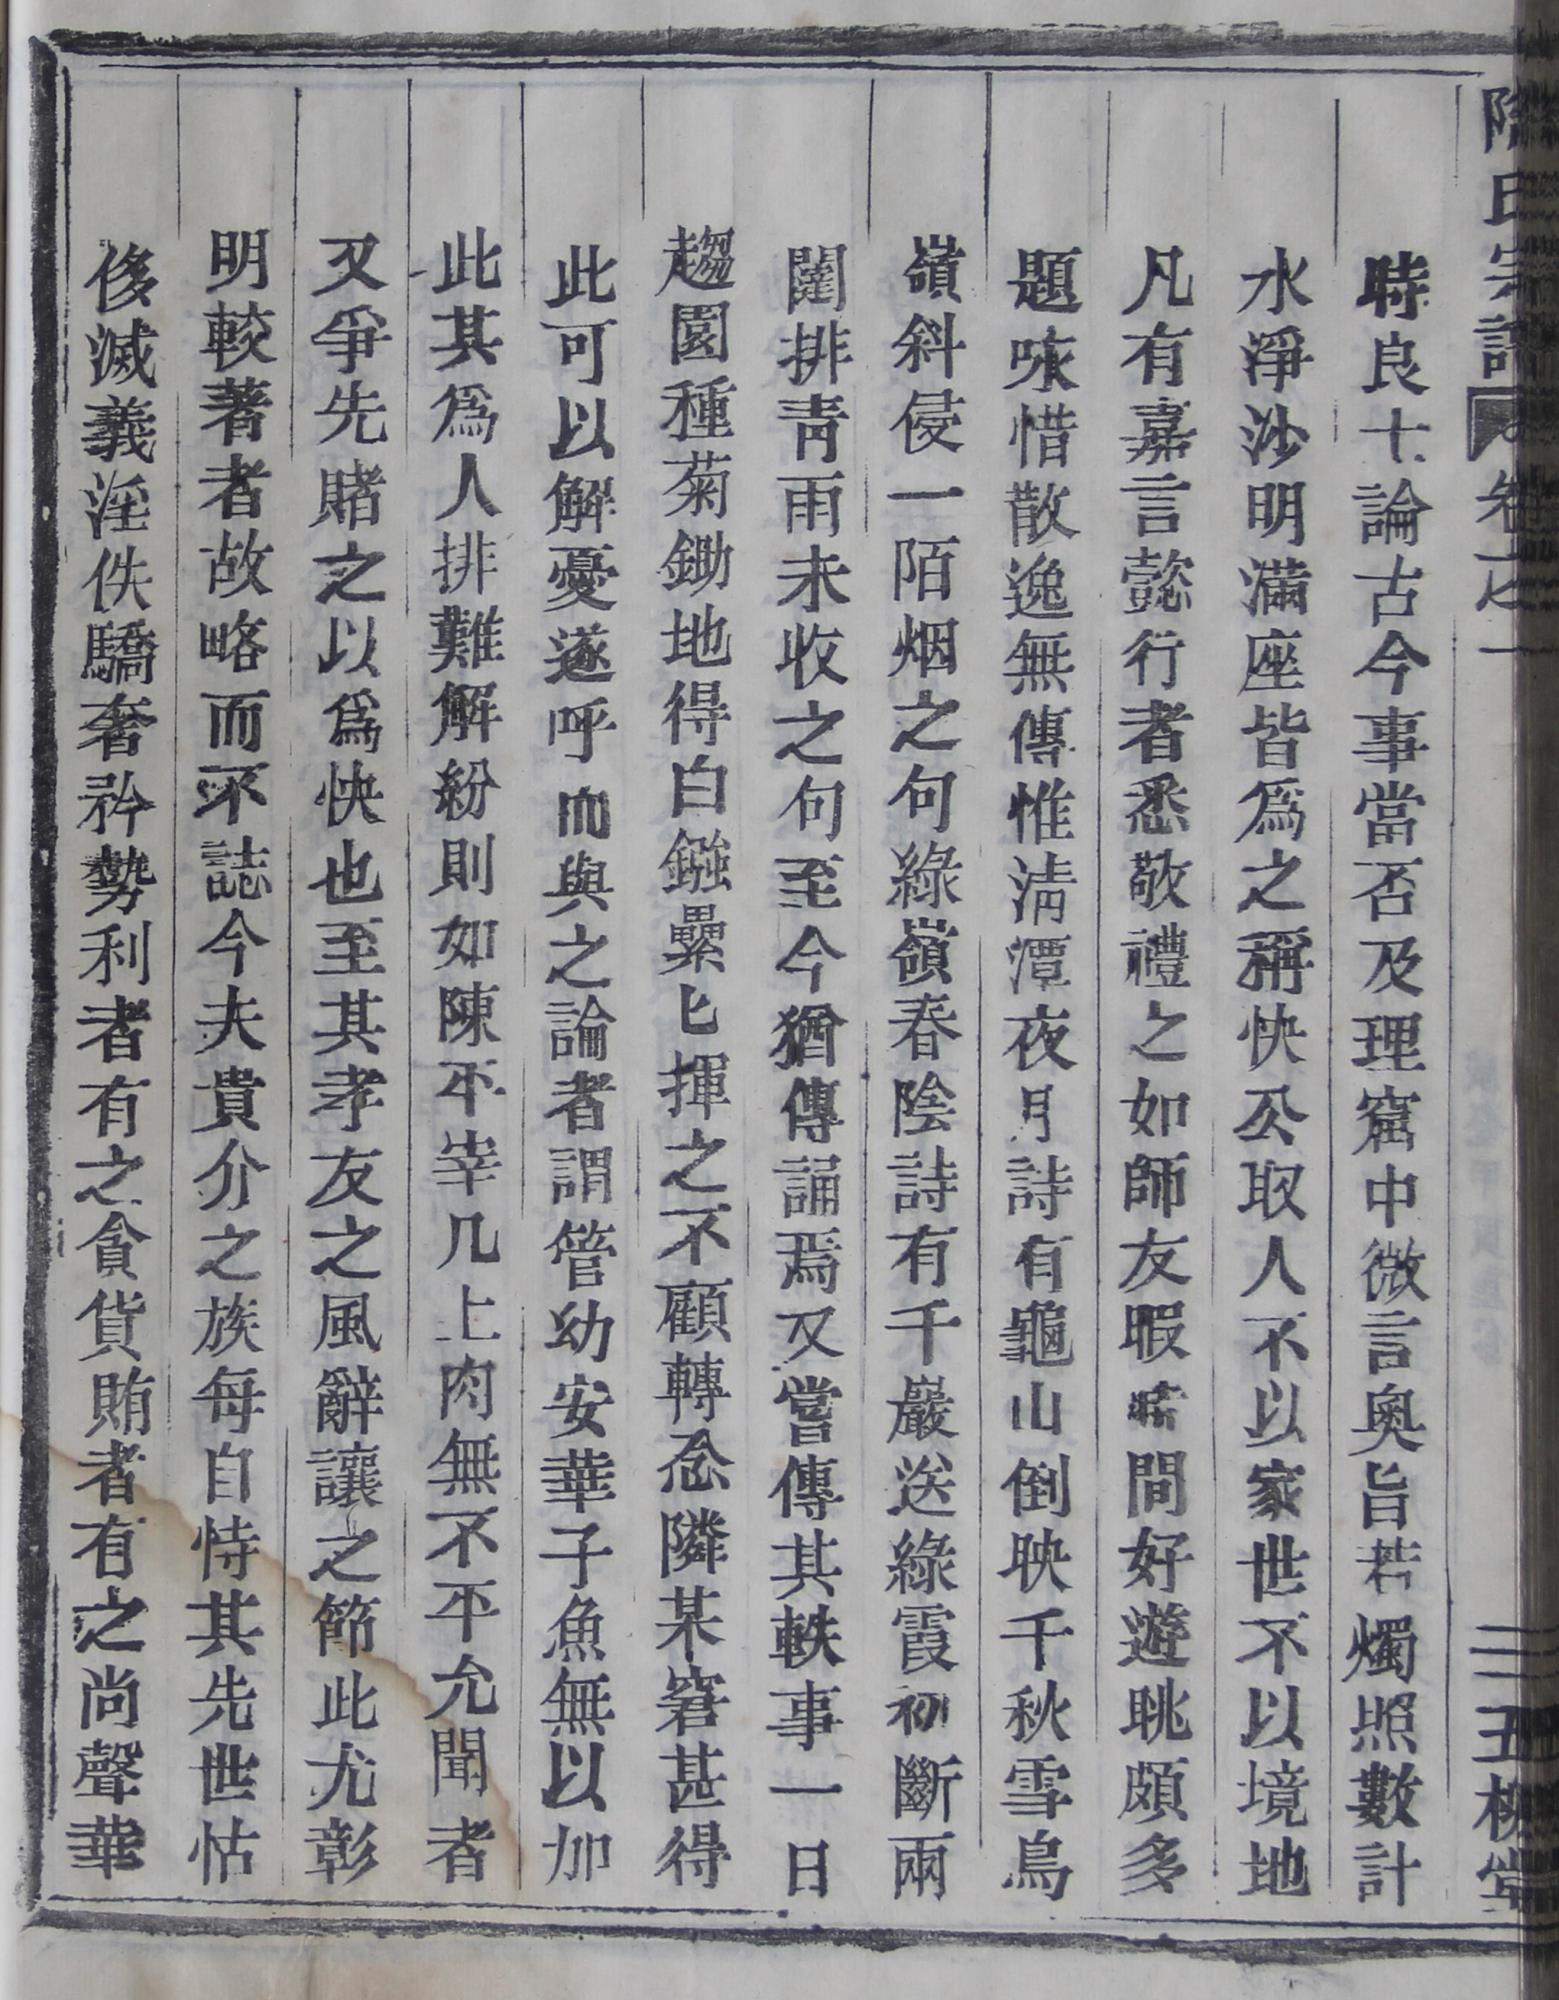 氏宗譜 卷之一 二 五柳堂
時良士論古今事當否及理窟中微言奧旨若燭照數計
水淨沙明滿座皆爲之稱快公取人不以家世不以境地
凡有嘉言懿行者悉敬禮之如師友暇時間好遊眺頗多
題咏惜散逸無傳惟淸潭夜月詩有龜山倒映千秋雪鳥
嶺斜侵一陌烟之句綠嶺春陰詩有千巖送綠霞初斷兩
闥排靑雨未收之句至今猶傳誦焉又嘗傳其軼事一日
趨園種菊鋤地得白鏹纍匕揮之不顧轉念隣某窘甚得
此可以解憂遂呼而與之論者謂管幼安華子魚無以加
此其爲人排難解紛則如陳平宰几上肉無不平允聞者
又爭先賭之以爲快也至其孝友之風辭讓之節此尤彰
明較著者故略而不誌今夫貴介之族每自恃其先世怙
侈滅義淫佚驕奢矜勢利者有之貪貨賄者有之尚聲華